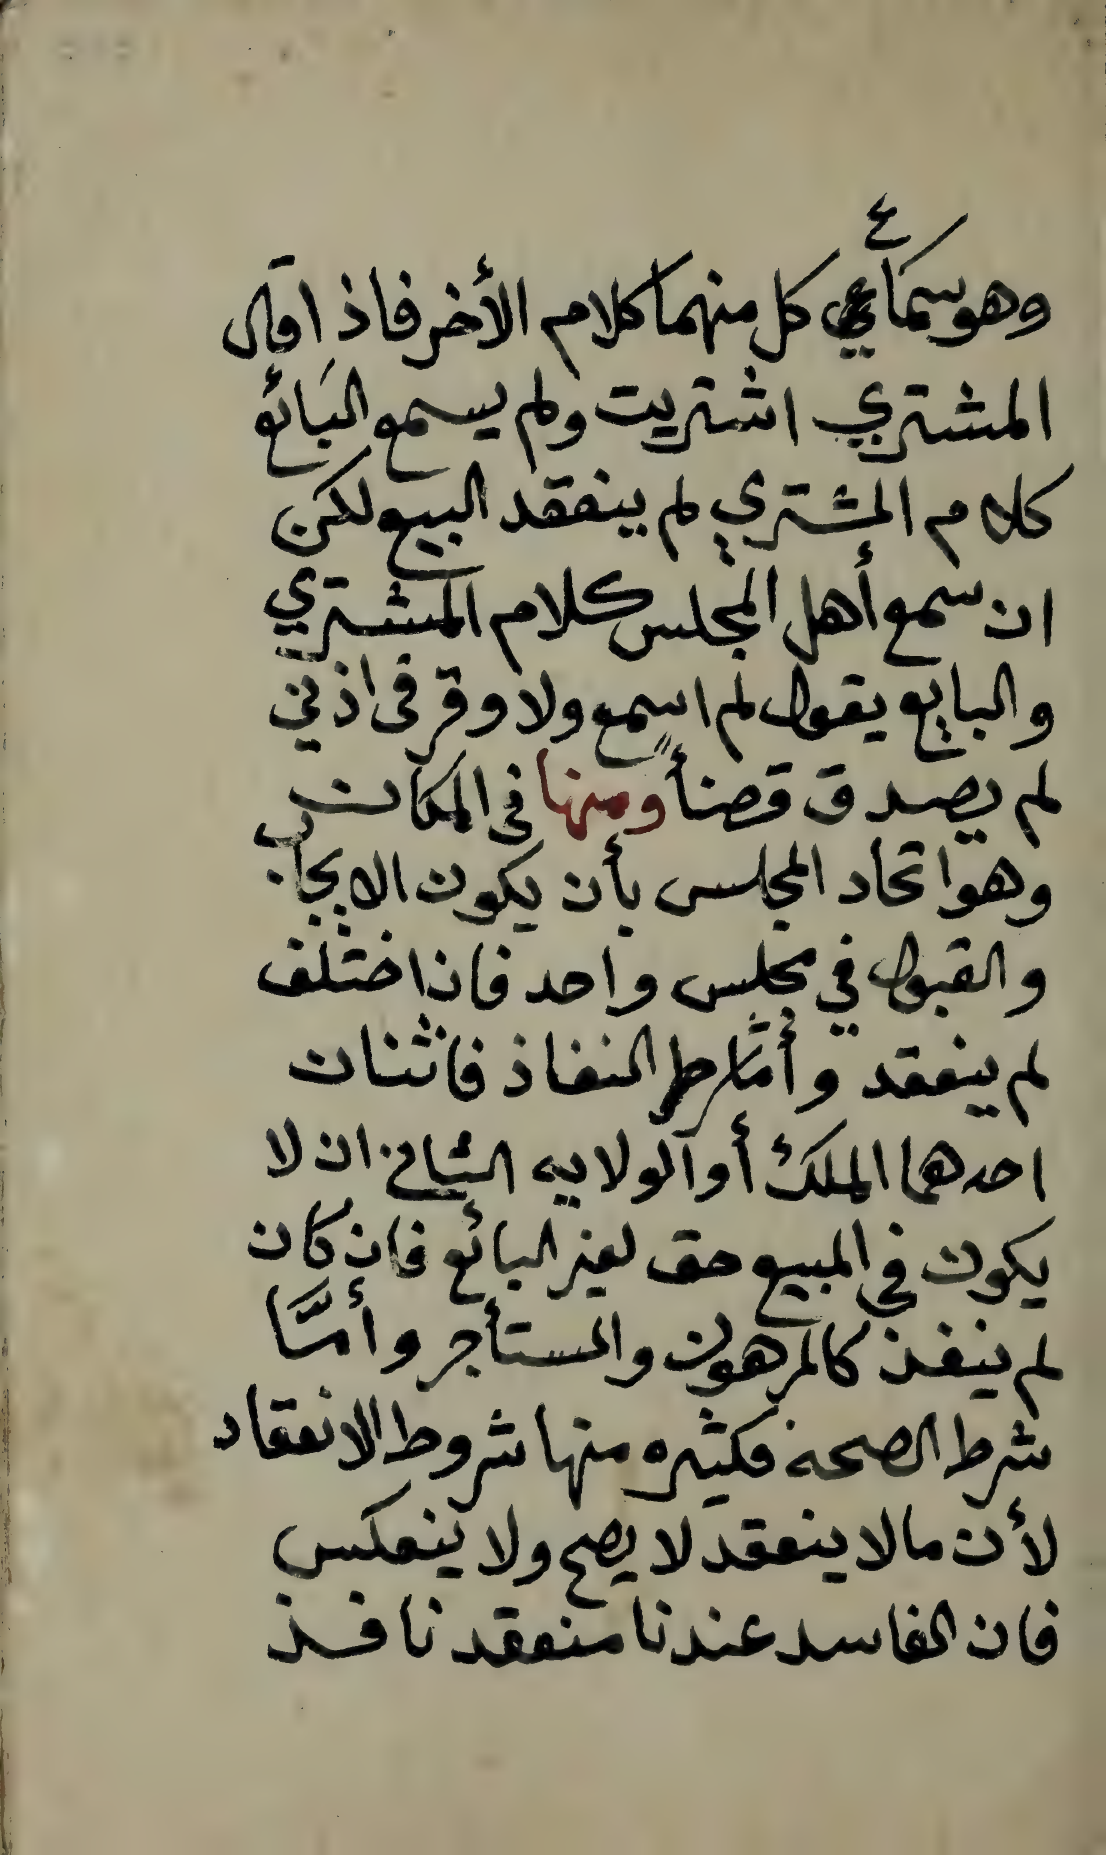 وهو سماع كل منهما كلام الأخر فاذا قال
المشتري اشتريت ولم يسمع البَائع
كلام المشتري لم ينعقد البيع لكن
ان سمع أهل المجلس كلام المشتري
والبايع يقول لم اسمع ولا وقر في اذني
لم يصدق قضأً ومنها في المكان
وهو اتحاد المجلس بأن يكون الايجاب
والقبول في مجلس واحد فاذا اختلف
لم ينعقد وأمّا شرط النفاذ فاثنان
احدهما الملك أو الولايه الثاني ان لا
يكون في المبيع حق لغير البائع فان كان
لم ينفذ كالمرهون والمستأجر وأمّا
شرط الصحة فكثيره منها شروط الانعقاد
لأن مالا ينعقد لا يصح ولا ينعكس
فان الفاسد عندنا منعقد نافذ